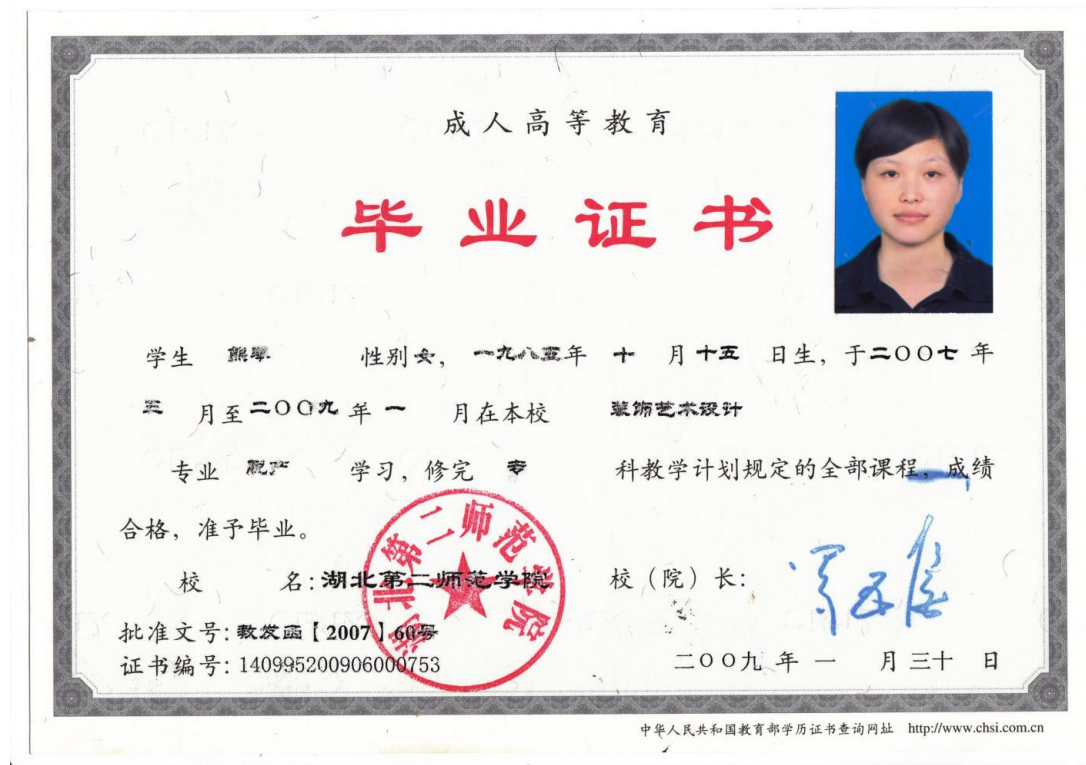 成人高等教育
毕业证书
学生 熊翠 性别女，一九八五年 十 月十五 日生，于二〇〇七 年
三 月至二〇〇九 年 一 月在本校 装饰艺术设计
专业 脱产 学习，修完 专 科教学计划规定的全部课程，成绩
合格，准予毕业。
校 名：湖北第二师范学院 校（院）长：
批准文号：教发函【2007】60号
证书编号：140995200906000753
二〇〇九 年 一 月 三十 日
湖北第二师范学院
中华人民共和国教育部学历证书查询网址 http://www.chsi.com.cn